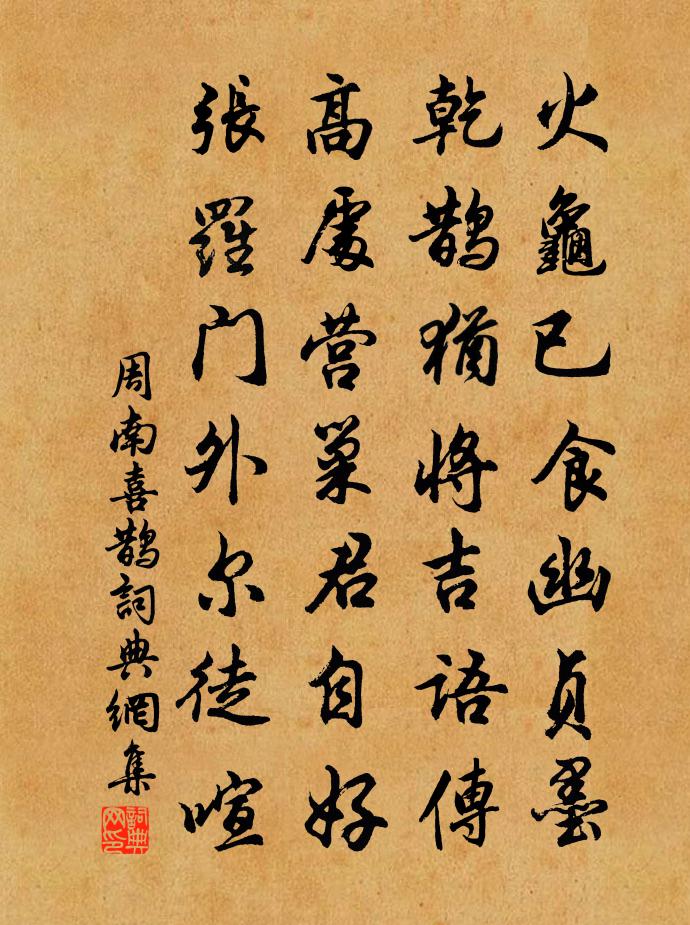 火龜已食幽貞墨
乾鵲猶將吉語傳
高處營巢君自好
張羅門外尔徒喧
周南喜鵲詞典網集
詞典网印